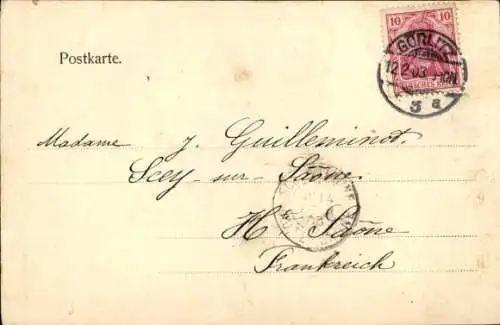 10 10
GÖRLITZ
12 2 03
3 a
Postkarte.
Madame J. Guilleminot.
Scey-sur-Saône.
Hte Saône
Frankreich